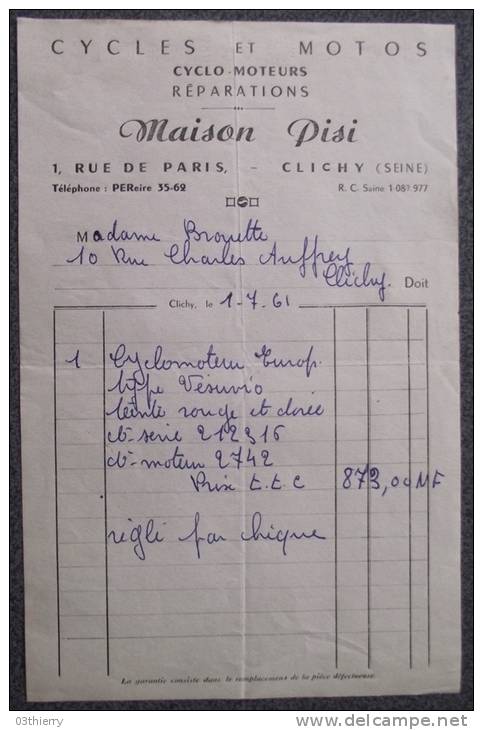 CYCLES ET MOTOS
CYCLO-MOTEURS
RÉPARATIONS
Maison Pisi
1, RUE DE PARIS, - CLICHY (SEINE)
Téléphone : PEReire 35-62 R. C. Seine 1 083 977
Madame Brouette
10 Rue Charles Auffrey
Clichy. Doit
Clichy, le 1-7-61
1 Cyclomoteur Europ.
type Vésuvio
teinte rouge et dorée
de série 212316
de moteur 2742
Prix t.t.c 873,00 NF
réglé par chèque
La garantie consiste dans le remplacement de la pièce défectueuse.
03thierry
www.delcampe.net